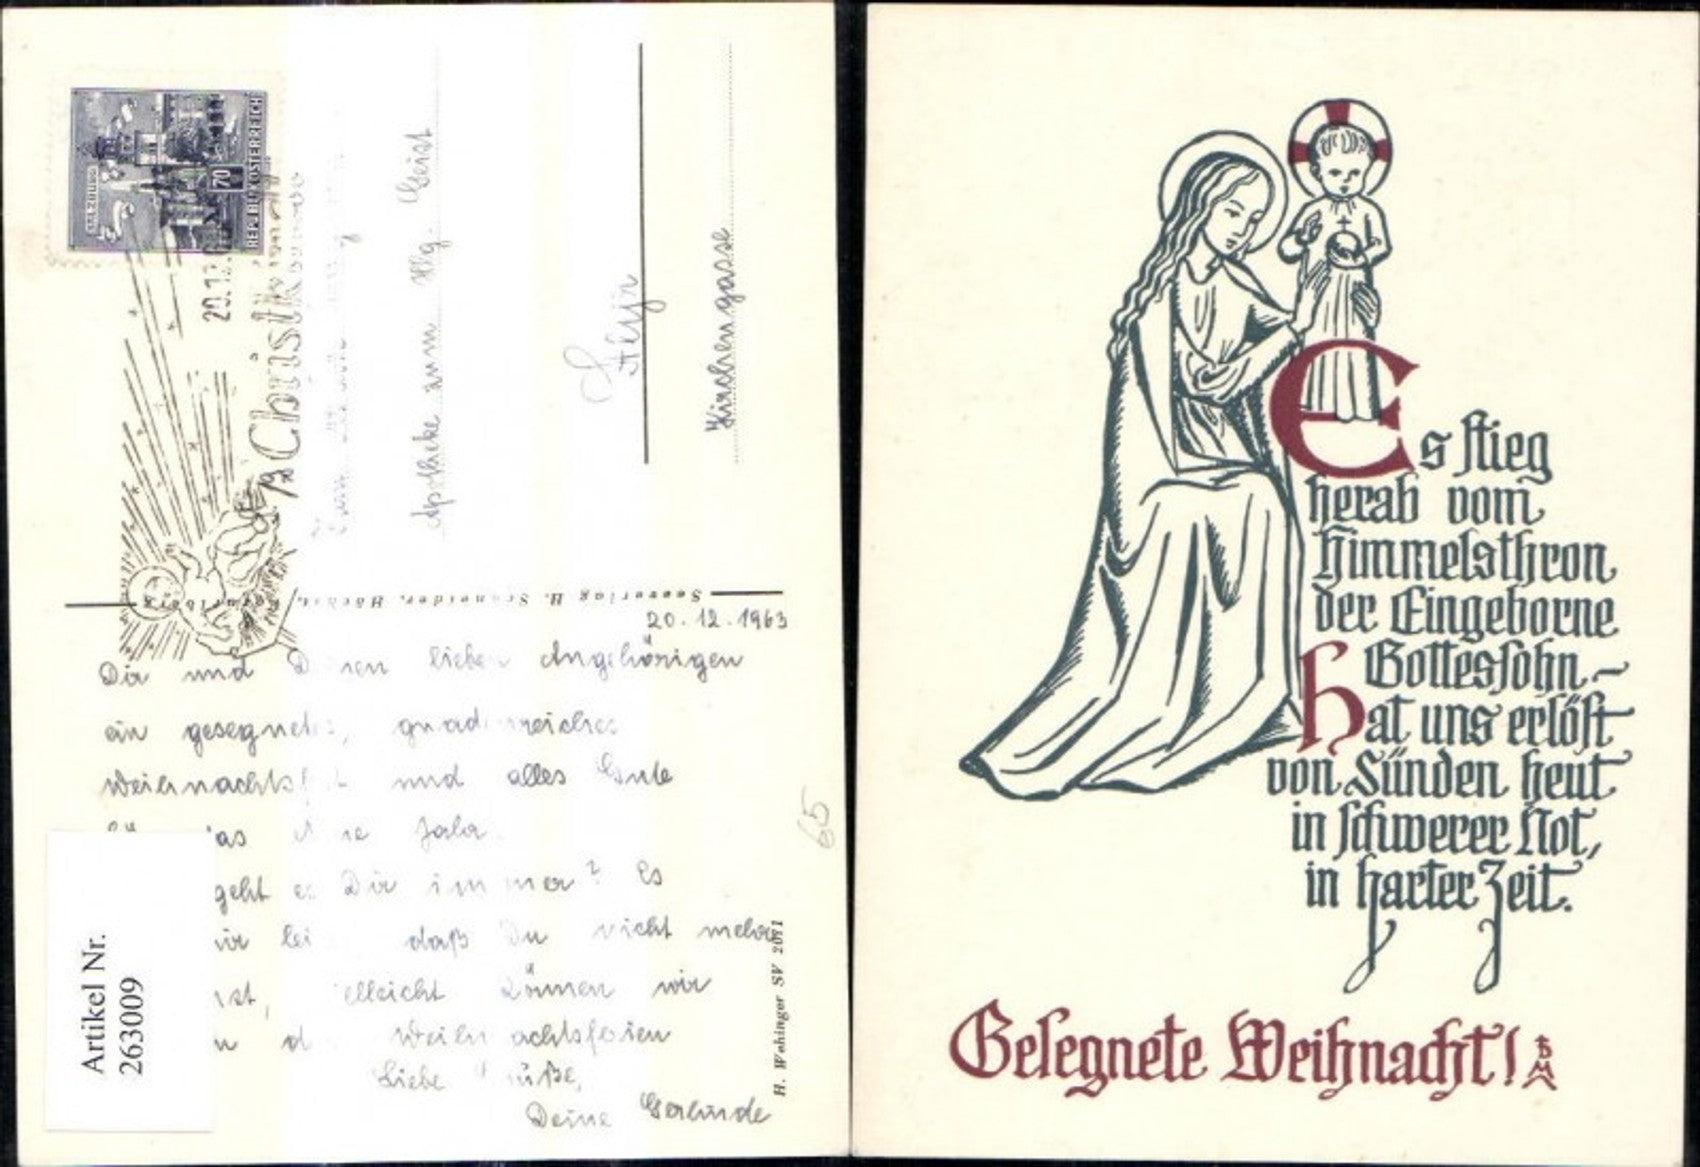 SALZBURG
70
REPUBLIK ÖSTERREICH
20.12.
Christkindl
Apotheke zum Hlg. Geist
Steyr
Kirchengasse
Seeverlag H. Schneider, Höchst,
20.12.1963
Dir und Deinen lieben Angehörigen
ein gesegnetes, gnadenreiches
Weihnachtsfest und alles Gute
Jahr.
geht es Dir immer? Es
daß Du nicht mehr
vielleicht können wir
Weihnachtsferien
Liebe Grüße,
Deine Gerlinde
65
H. Wehinger SV 2011
Artikel Nr.
263009
Es stieg
herab vom
Himmelsthron
der Eingeborne
Gottessohn –
hat uns erlöst
von Sünden heut
in schwerer Not,
in harter Zeit.
Gesegnete Weihnacht!